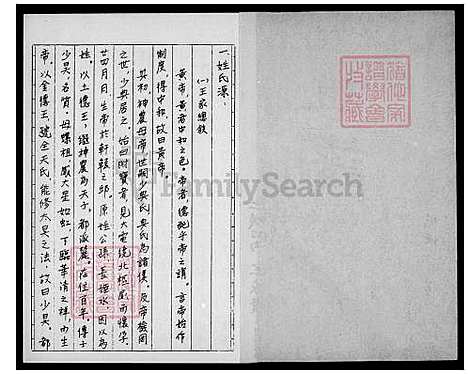 一、姓氏源：
(一)王家總敘
黃帝，黃者中和之色，帝者，德配乎帝之謂，言帝始作
制度，得中和，故曰黃帝。
吳初，神農母帝，世嗣少典氏為諸侯，及帝榆罔
之世，少典居之，始曰附寶者，見大電繞北極感而懷孕，
廿四月日，生帝於軒轅之邱，原姓公孫長姬水，因以為
姓。以土德王，繼神農為天子，都涿鹿。在位百年，傳子
少昊，名質，母嫘祖，感大星如虹，下臨華渚之祥，而生
帝，以金德王，號金天氏，能修太昊之法，故曰少昊，都
FamilySearch